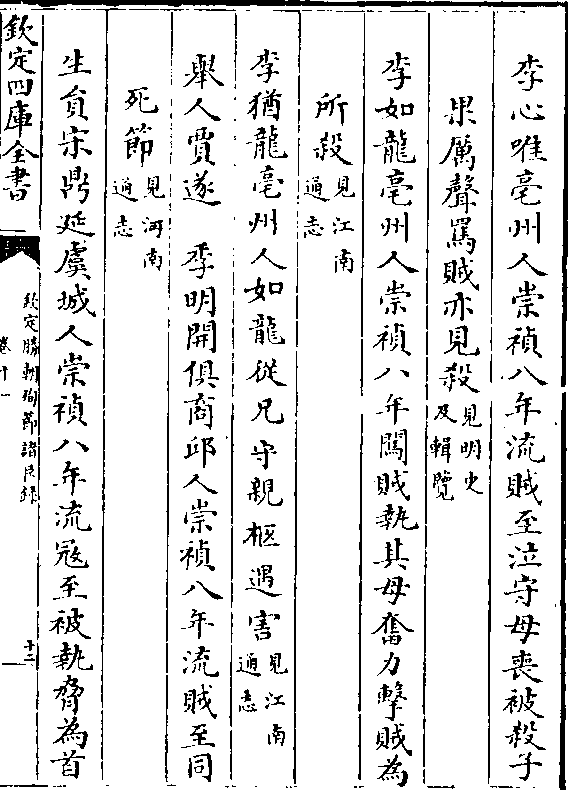 李心唯亳州人崇禎八年流賊至泣守母喪被殺子
果厲聲罵賊亦見殺見明史及輯覽
李如龍亳州人崇禎八年闖賊執其母奮力擊賊為
所殺見江南通志
李猶龍亳州人如龍從兄守親柩遇害見江南通志
舉人賈遂 季明開俱商邱人崇禎八年流賊至同
死節見河南通志
生員宋鼎延虞城人崇禎八年流寇至被執脅為首
欽定四庫全書
欽定勝朝殉節諸臣錄
卷十一
十二